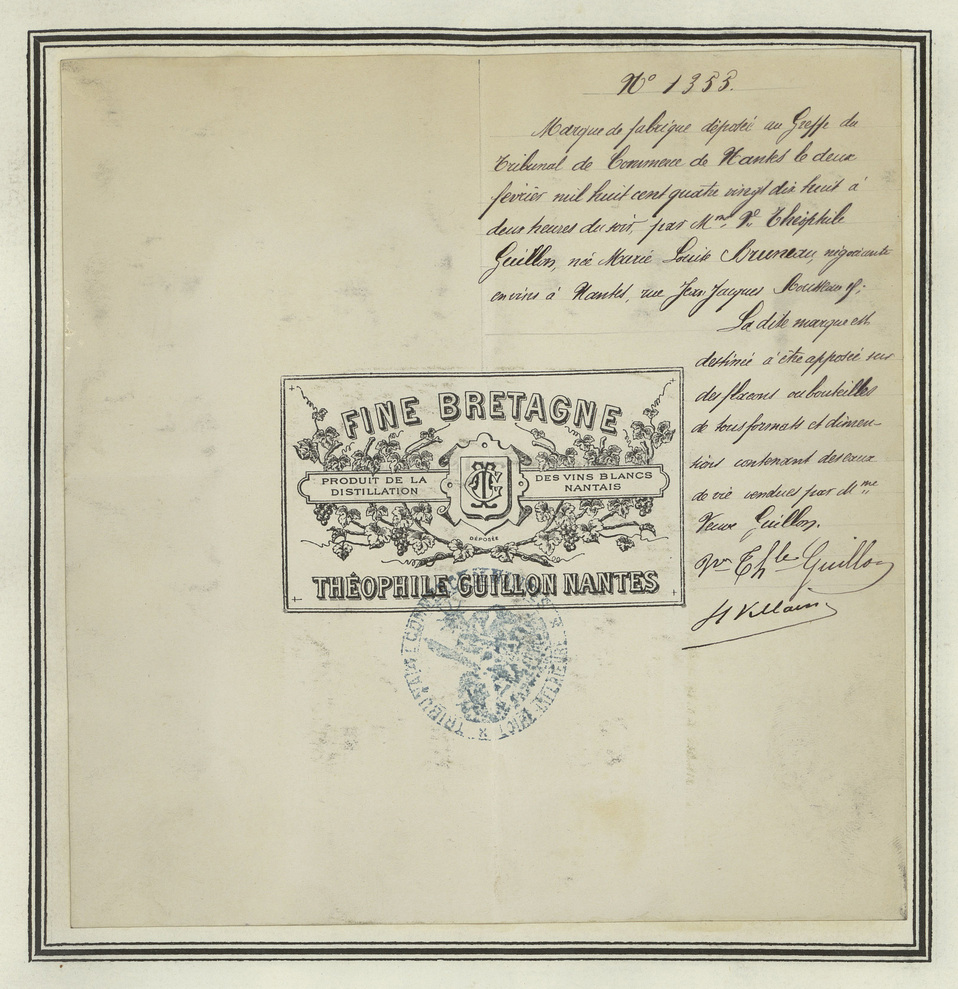 Nº 1355.
Marque de fabrique déposée au Greffe du
Tribunal de Commerce de Nantes le deux
février mil huit cent quatre vingt dix huit à
deux heures du soir, par Mme Vve Théophile
Guillon, née Marie Louise Bruneau, négociante
en vins à Nantes, rue Jean Jacques Rousseau
La dite marque est
destinée à être apposée sur
des flacons ou bouteilles
de tous formats et dimen-
sions contenant des eaux
de vie vendues par Mme
Veuve Guillon.
Vve Thle Guillon
H Villain
FINE BRETAGNE
PRODUIT DE LA
DISTILLATION
DES VINS BLANCS
NANTAIS
DÉPOSÉE
THÉOPHILE GUILLON NANTES